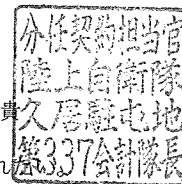 分任契約担当官
陸上自衛隊
久居駐屯地
第337会計隊長
貴
れ